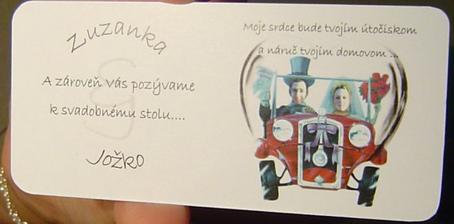 Zuzanka
A zároveň Vás pozývame
k svadobnému stolu....
Jožko
Moje srdce bude tvojím útočiskom
a náruč tvojím domovom...